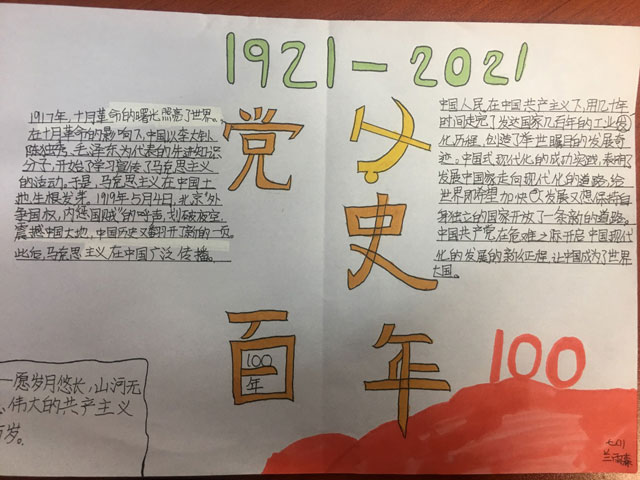 1921-2021
党史
百年
100
年
1917年,十月革命的曙光照亮了世界。
在十月革命的影响下,中国以李大钊、
陈独秀、毛泽东为代表的先进知识
分子,开始了学习宣传了马克思主义
的运动。于是,马克思主义在中国土
地生根发芽。1919年5月4日,北京"外
争国权,内惩国贼"的呼声,划破夜空,
震撼中国大地,中国历史又翻开了新的一页。
此后,马克思主义在中国广泛传播。
中国人民在中国共产主义下,用几十年
时间走完了发达国家几百年的工业
化历程,创造了举世瞩目的发展奇
迹。中国式现代化的成功实践,表明了
发展中国家走向现代化的道路,给
世界那希望加快发展又想保持自
身独立的国家开放了一条新的道路。
中国共产党在危难之际开启中国现代
化的发展的新征程,让中国成为了世界
大国。
一愿岁月悠长,山河无
伟大的共产主义
岁。
100
七01
兰雨